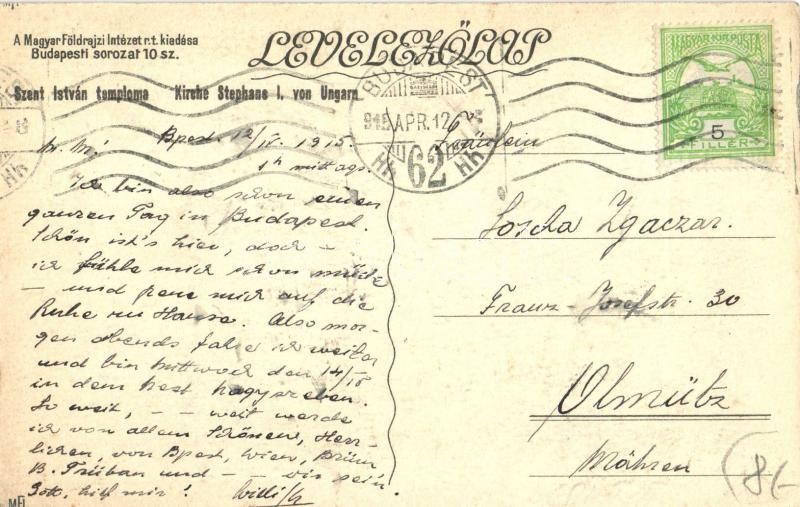 A Magyar Földrajzi Intézet r.t. kiadása
Budapesti sorozat 10 sz.
LEVELEZŐLAP
MAGYAR KIR. POSTA
5
FILLÉR
Szent István temploma Kirche Stephans I. von Ungarn
BUDAPEST
915 APR. 12
62
Bpest. 12/IV. 1915.
1h mittags.
Ich bin also schon einen
ganzen Tag in Budapest.
Schön ist's hier, doch –
ich fühle mich schon müde
– und freue mich auf die
Ruhe zu Hause. Also mor-
gen abends fahre ich weiter
und bin Mittwoch den 14/IV
in dem Nest Nagyszeben.
So weit, – – weit werde
ich von allem Schönen, Herr-
lichen, von Bpest, Wien, Brünn
B. Trübau und – – Dir sein.
Gott, hilf mir! Willi
Fräulein
Soscha Zgaczar.
Franz-Josefstr. 30
Olmütz
Mähren
8/-